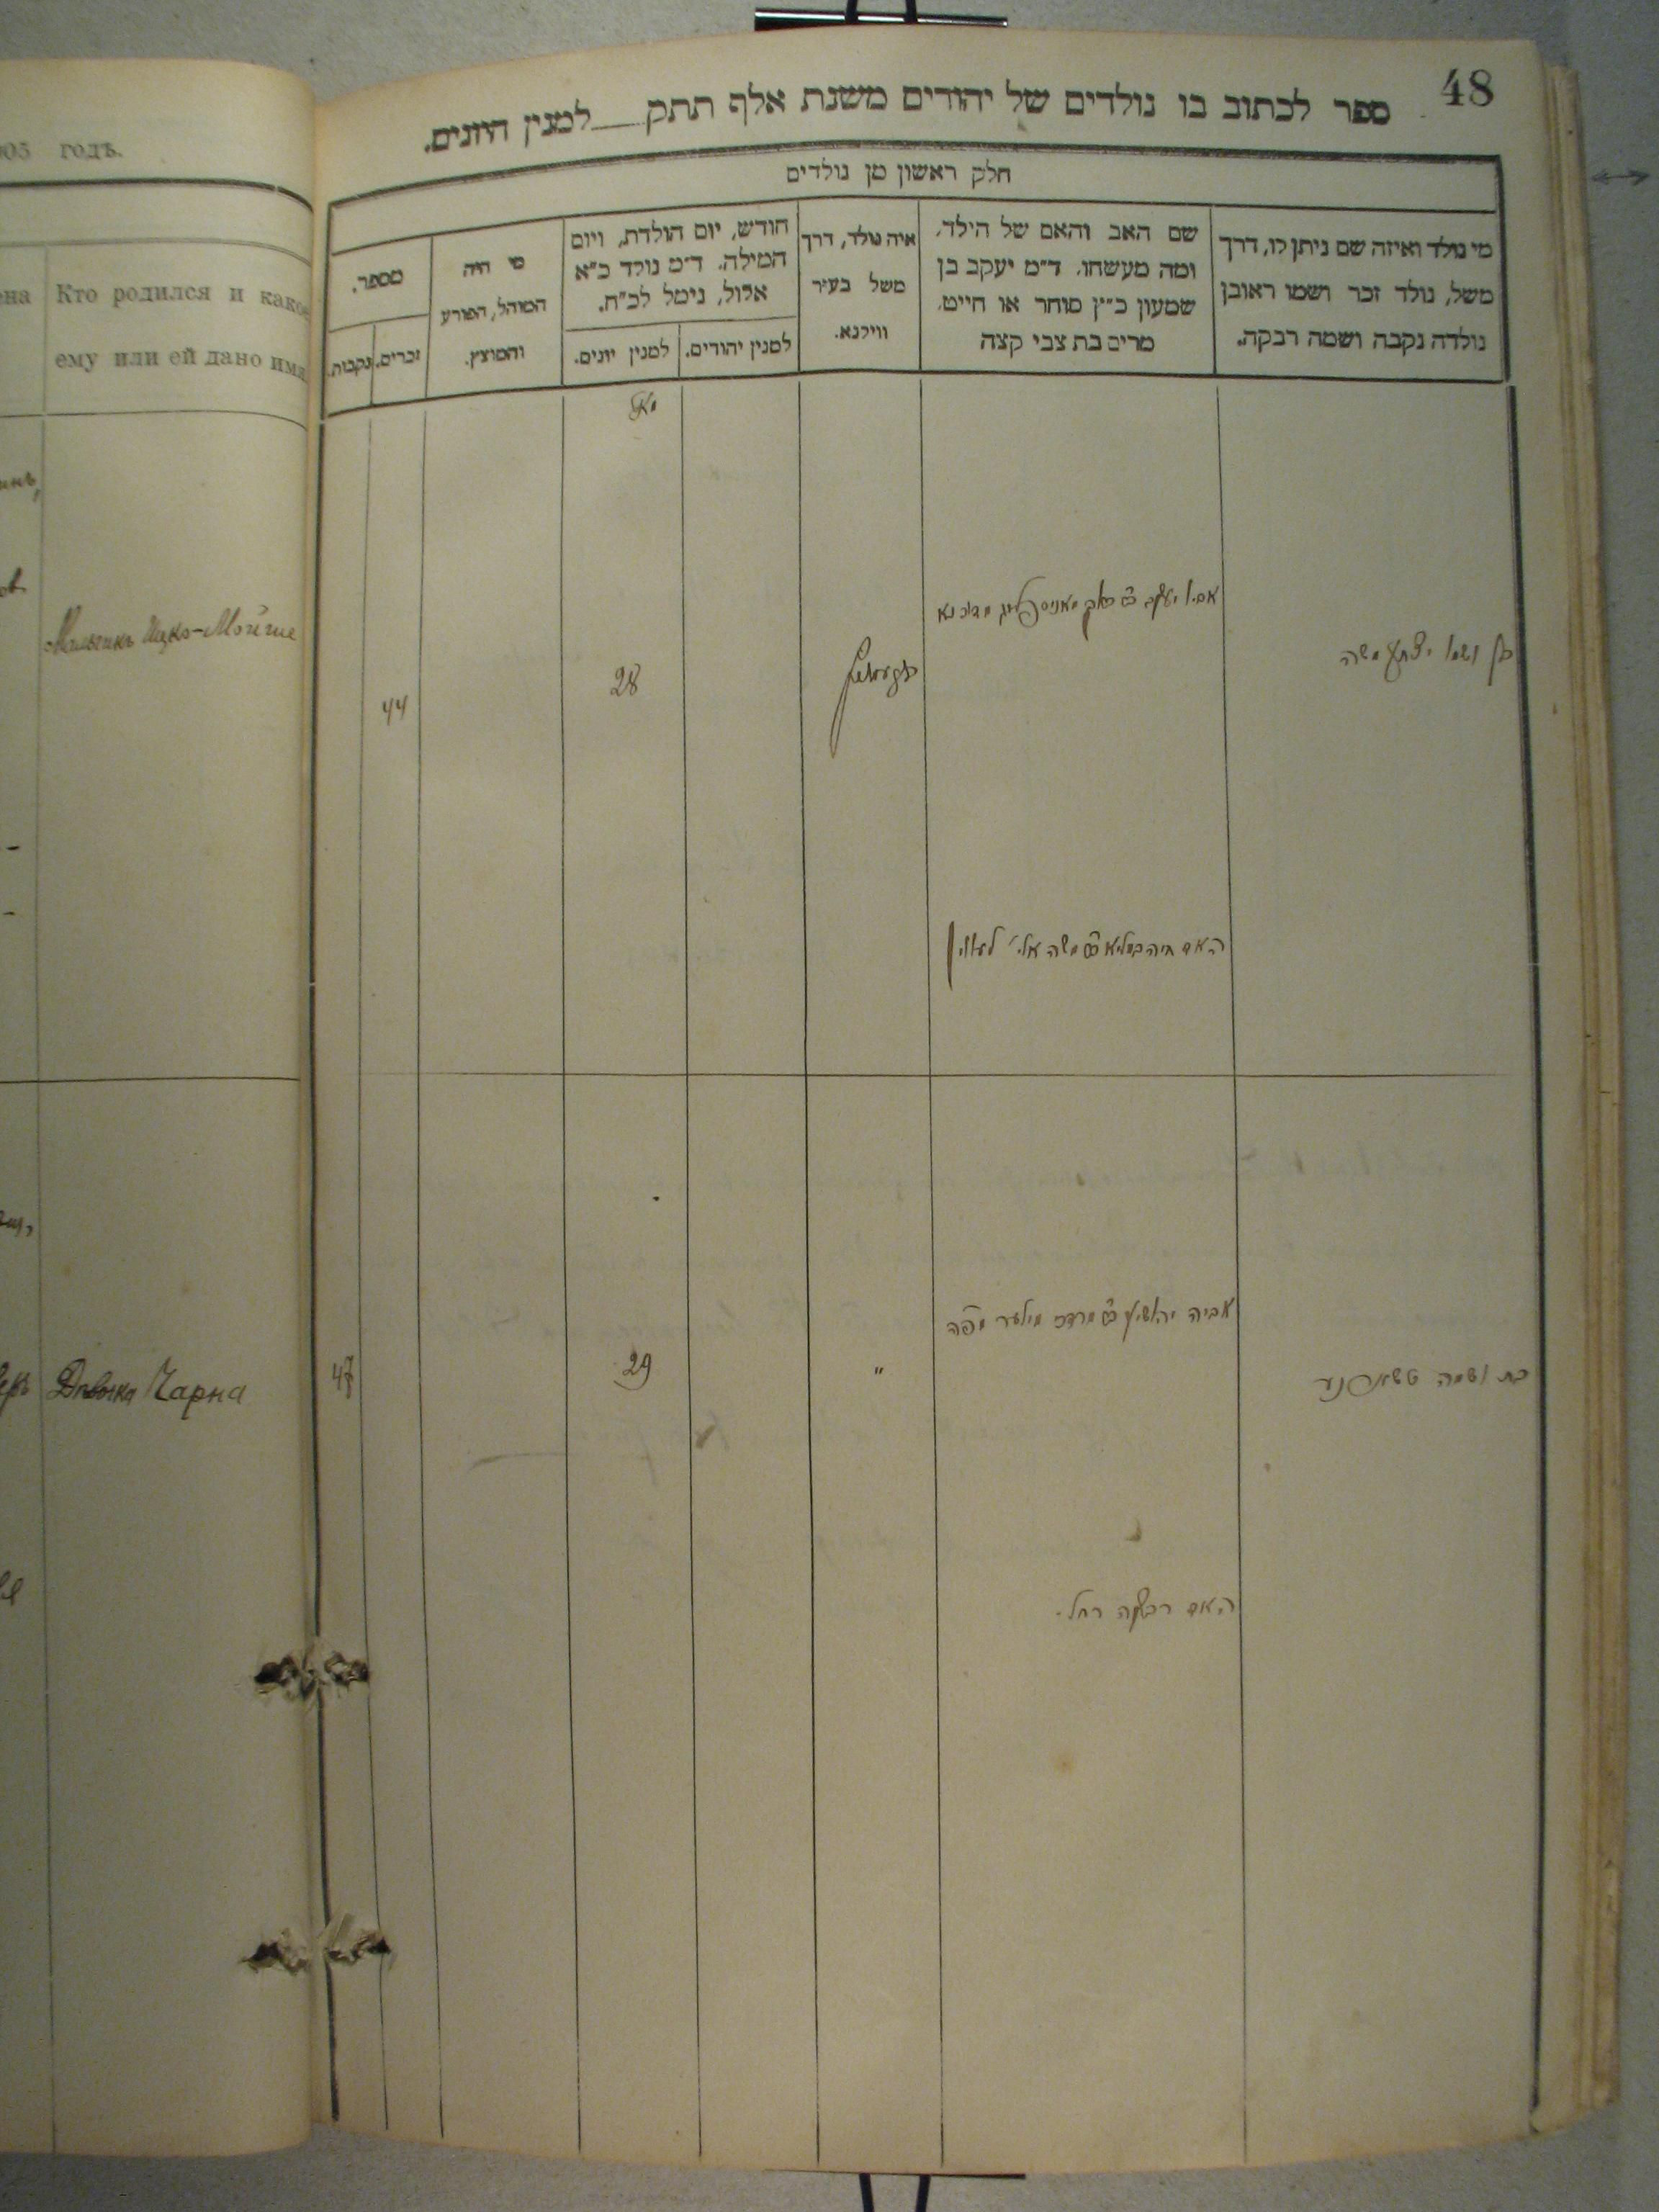 48
ספר לכתוב בו נולדים של יהודים משנת אלף תתק__למנין היונים.
חלק ראשון מן נולדים
מי נולד ואיזה שם ניתן לו, דרך
משל, נולד זכר ושמו ראובן
נולדה נקבה ושמה רבקה.
שם האב והאם של הילד,
ומה מעשהו. ד״מ יעקב בן
שמעון כ״ץ סוחר או חייט,
מרים בת צבי קצה
איה נולד, דרך
משל בעיר
ווילנא.
חודש, יום הולדת, ויום
המילה. ד״מ נולד כ״א
אלול, נימל לכ״ח.
למנין יהודים.
למנין יונים.
מי היה
המוהל, הפורע
והמוצץ.
מספר.
זכרים.
נקבות.
בן ושמו יצחק משה
28
44
האם חיה משה
אביה יהושע מרדכי מילער מפה
בת ושמה
"
29
47
האם רבקה רחל.
905 годъ.
Кто родился и какое
ему или ей дано имя
Мальчикъ Ицко-Мойше
Дѣвочка Чарна